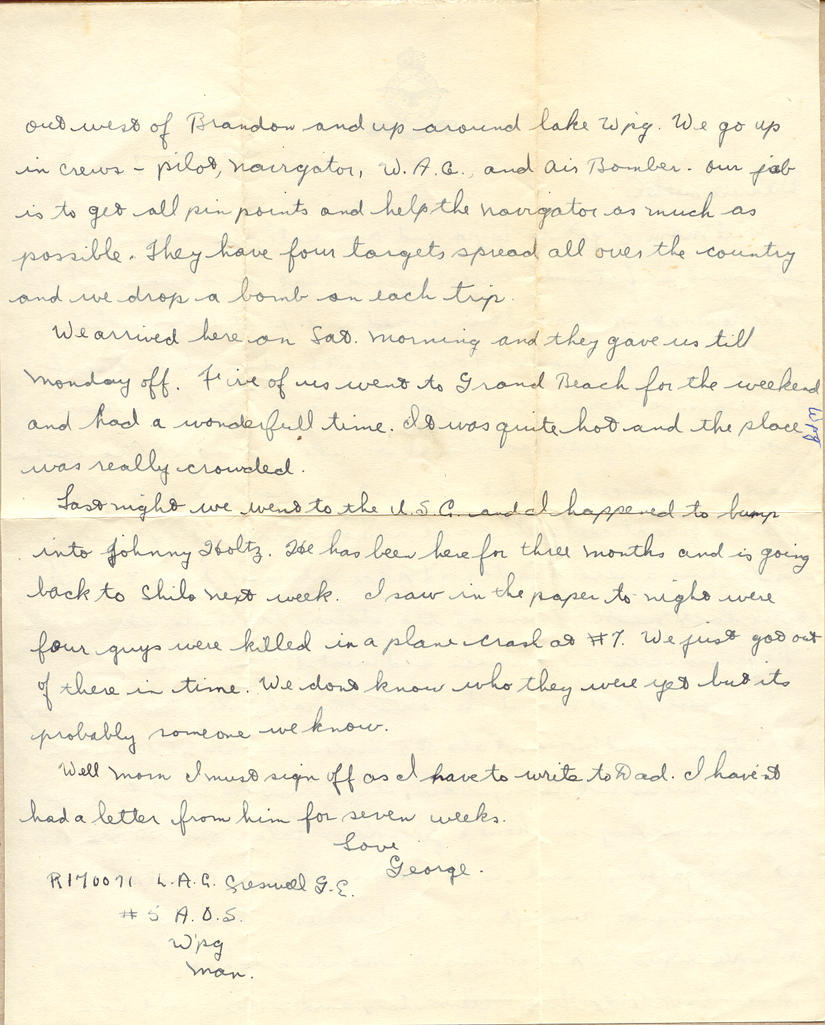 out west of Brandon and up around lake Wpg. We go up
in crews - pilot, navigator, W.A.G., and Air Bomber. our job
is to get all pin points and help the navigator as much as
possible. They have four targets spread all over the country
and we drop a bomb on each trip.
We arrived here on Sat. morning and they gave us till
Monday off. Five of us went to Grand Beach for the weekend
and had a wonderfull time. It was quite hot and the place
was really crowded.
Wpg
Last night we went to the U.S.O. and I happened to bump
into Johnny Holtz. He has been here for three months and is going
back to Shilo next week. I saw in the paper to night were
four guys were killed in a plane crash at #7. We just got out
of there in time. We dont know who they were yet but its
probably someone we know.
Well mom I must sign off as I have to write to Dad. I havent
had a letter from him for seven weeks.
Love
George.
R170071 L.A.C. Creswell G.E.
#5 A.O.S.
Wpg
Man.